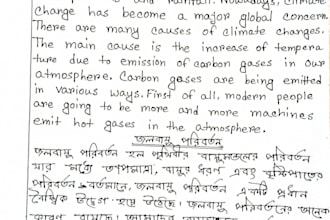 and Rainfall. Nowadays, Climate
Change has become a major global concern.
There are many causes of climate changes.
The main cause is the increase of tempera
ture due to emission of carbon gases in our
atmosphere. Carbon gases are being emitted
in various ways. First of all, modern people
are going to be more and more machines
emit hot gases in the atmosphere.
জলবায়ু পরিবর্তন
জলবায়ু পরিবর্তন হল পৃথিবীর বায়ুমন্ডলের পরিবর্তন
যার মধ্যে তাপমাত্রা, বায়ুর ধরণ এবং বৃষ্টিপাতের
পরিবর্তন বর্তমানে, জলবায়ু পরিবর্তন একটি প্রধান
বৈশ্বিক উদ্বেগ হয়ে উঠেছে। জলবায়ু পরিবর্তনের অনেক